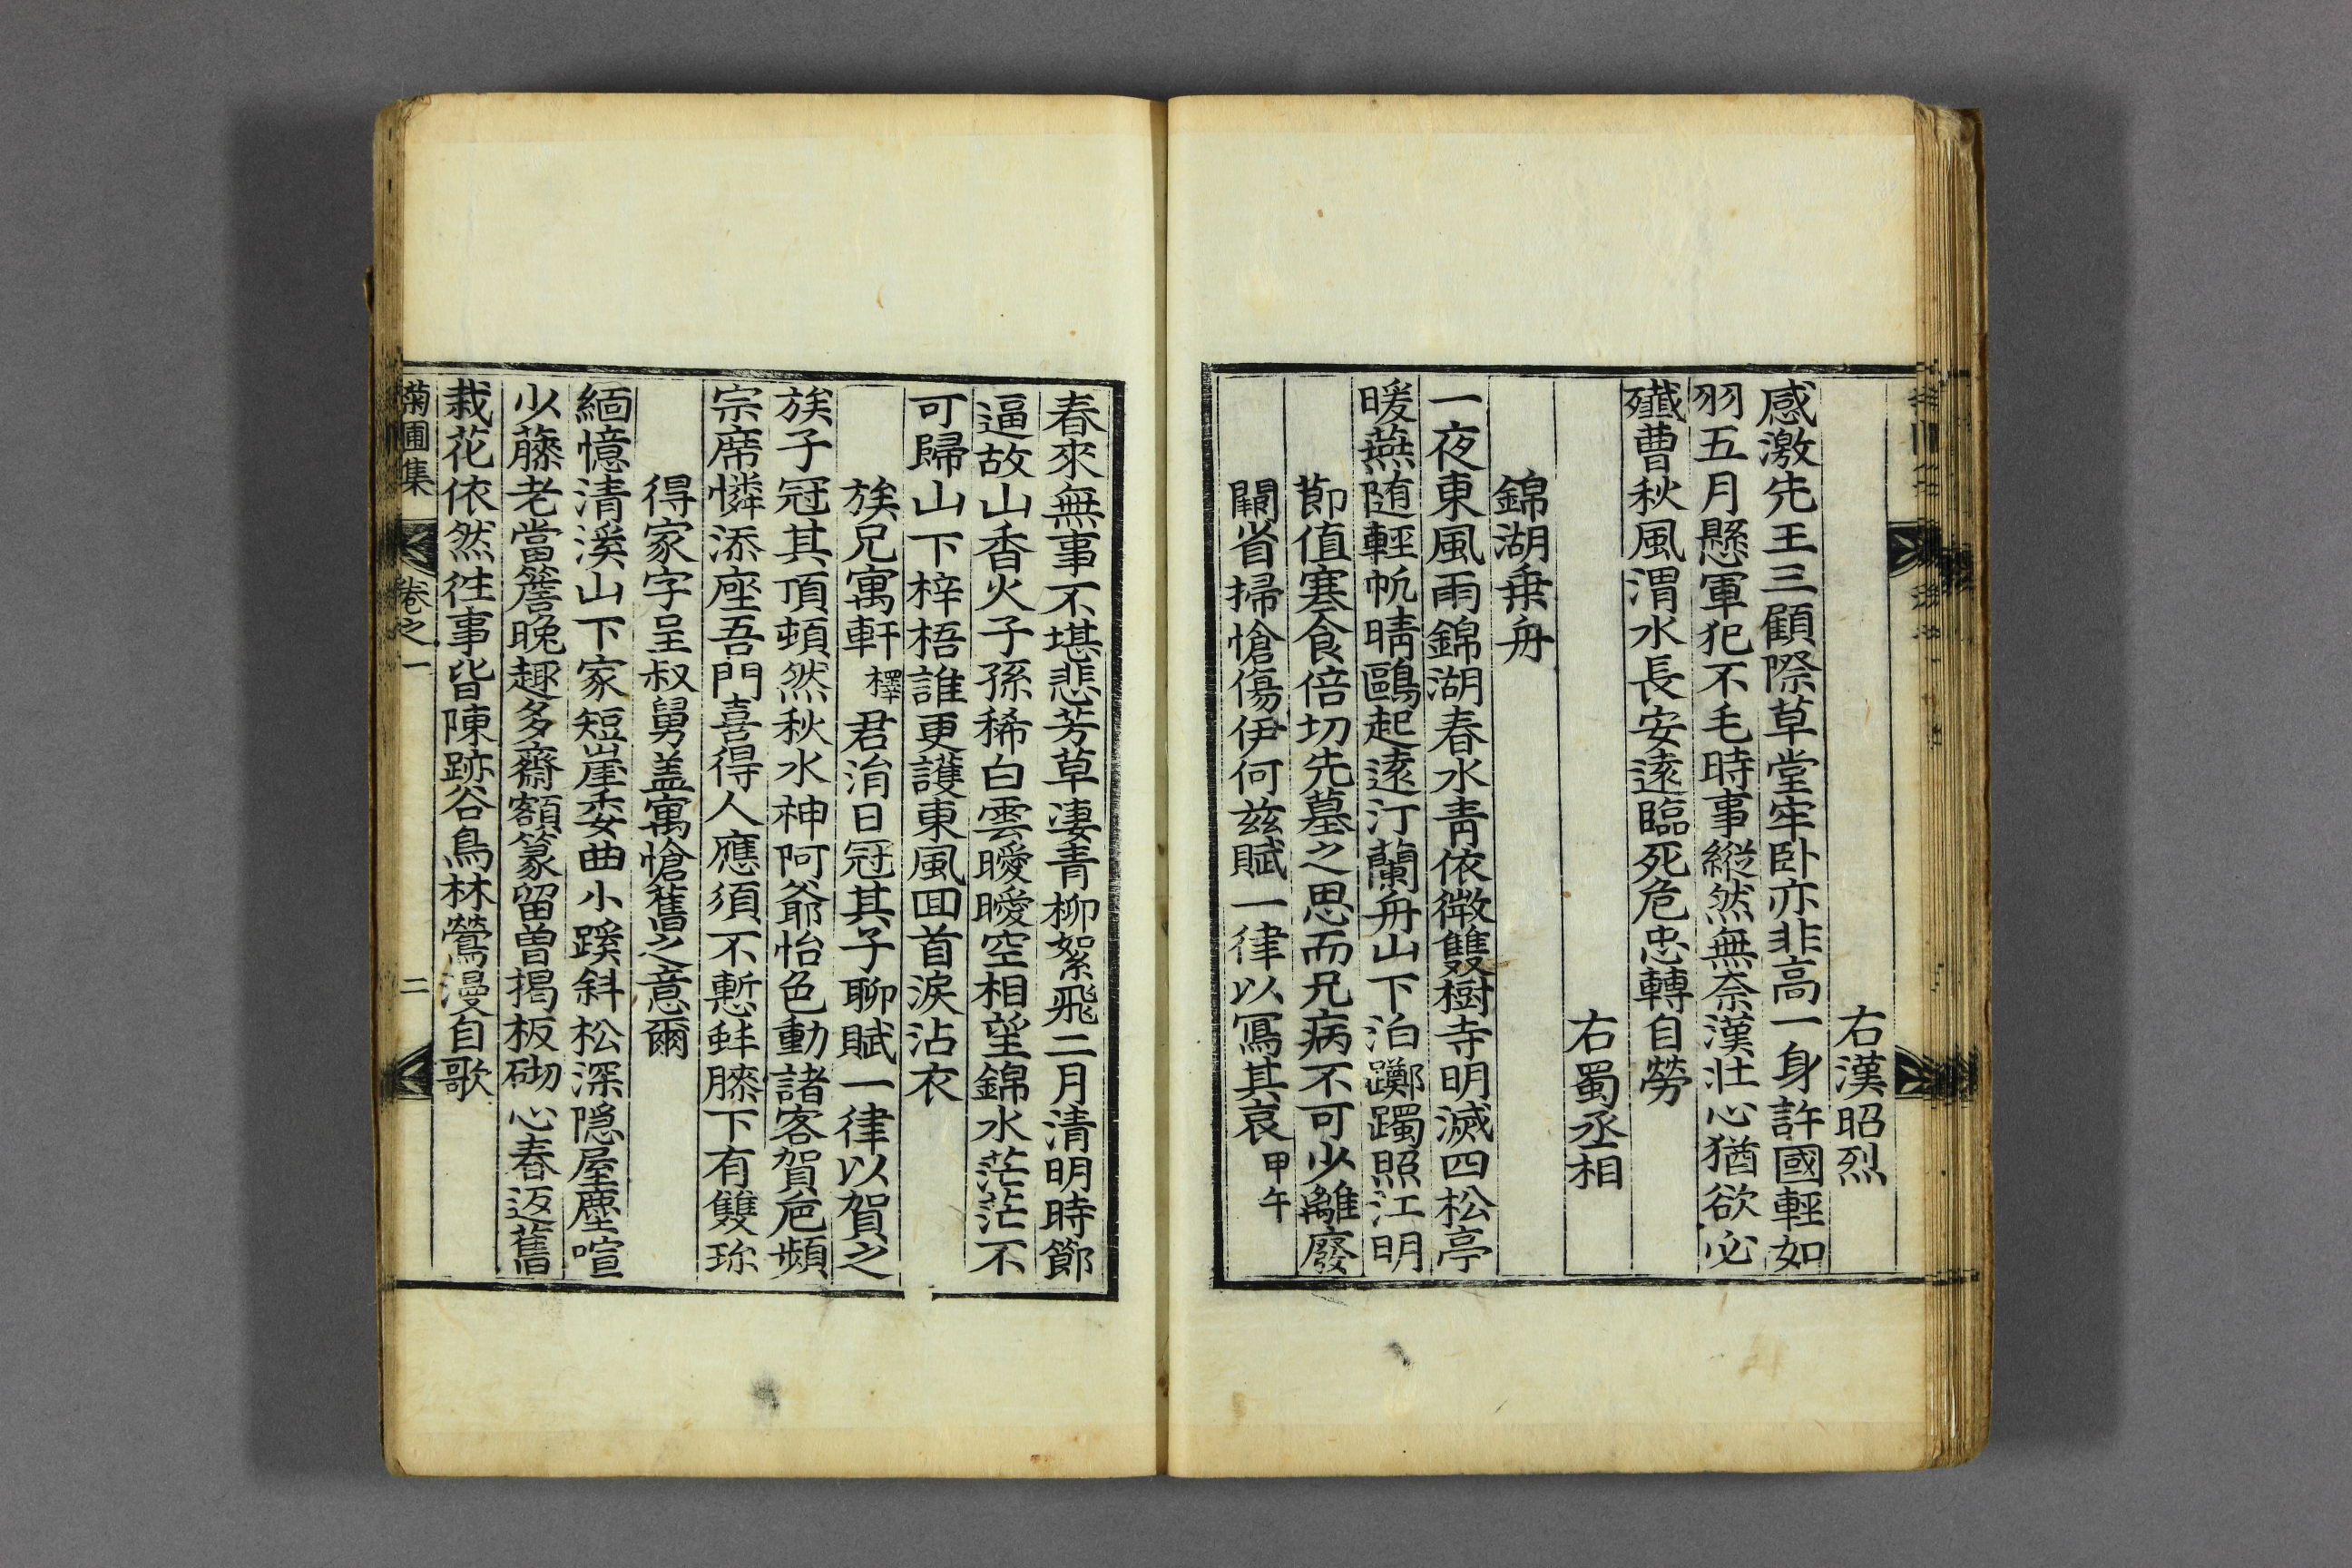 右漢昭烈
感激先王三顧際草堂牢卧亦非高一身許國輕如
羽五月懸軍犯不毛時事縱然無奈漢壯心猶欲必
殱曹秋風渭水長安遠臨死危忠轉自勞
右蜀丞相
錦湖乗舟
一夜東風雨錦湖春水青依微雙樹寺明滅四松亭
暖燕随輕帆晴鷗起遠汀蘭舟山下泊躑躅照江明
節值寒食倍切先墓之思而兄病不可少離廢
闕省掃愴傷伊何玆賦一律以寫其哀甲午
春來無事不堪悲芳草凄青柳絮飛二月清明時節
逼故山香火子孫稀白雲曖曖空相望錦水茫茫不
可歸山下梓梧誰更護東風囬首淚沾衣
族兄寓軒 檡 君洧日冠其子聊賦一律以賀之
族子冠其頂頎然秋水神阿爺怡色動諸客賀巵頻
宗席憐添座吾門喜得人應須不慙蚌膝下有雙珎
得家字呈叔舅盖寓愴舊之意爾
緬憶清溪山下家短崖委曲小蹊斜松深隠屋塵喧
少藤老當簷晚趣多齋額篆留曽揭板砌心春返舊
栽花依然徃事皆陳跡谷鳥林鶯漫自歌
菊圃集 卷之一 二